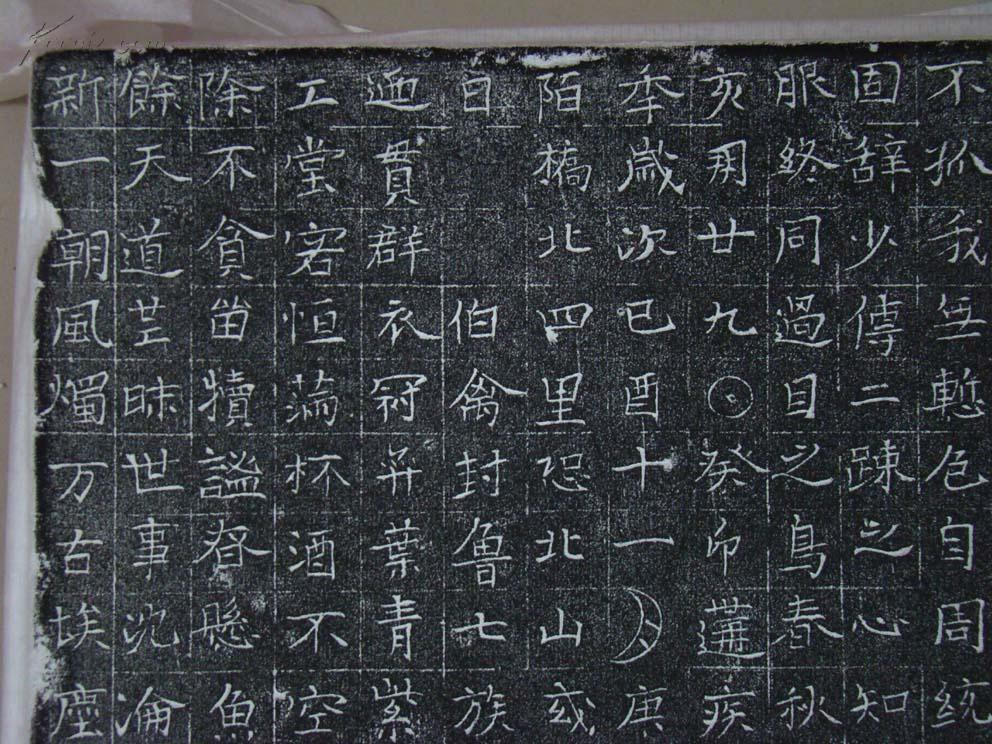 不孤我無慙自周統
固辝少傅二踈之心知
眼終同過目之鳥春秋
亥用廿九癸卯遘疾
年歲次己酉十一月庚
陌橋北四里恐北山或
日伯禽封魯七族
迺貫群衣冠弈葉青紫
工堂客恒滿杯酒不空
除不貪苗犢謐眷懸魚
餘天道茫昧世事沈淪
新一朝風燭万古埃塵